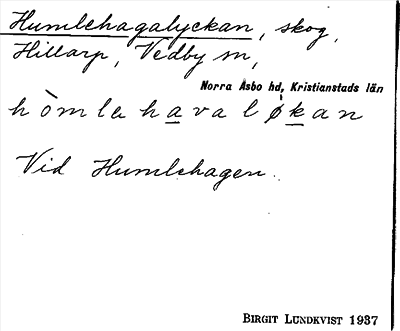 Humlehagalyckan, skog,
Hillarp, Vedby sn,
Norra Åsbo hd, Kristianstads län
hòmlahavaløkan
Vid Humlehagen.
BIRGIT LUNDKVIST 1937